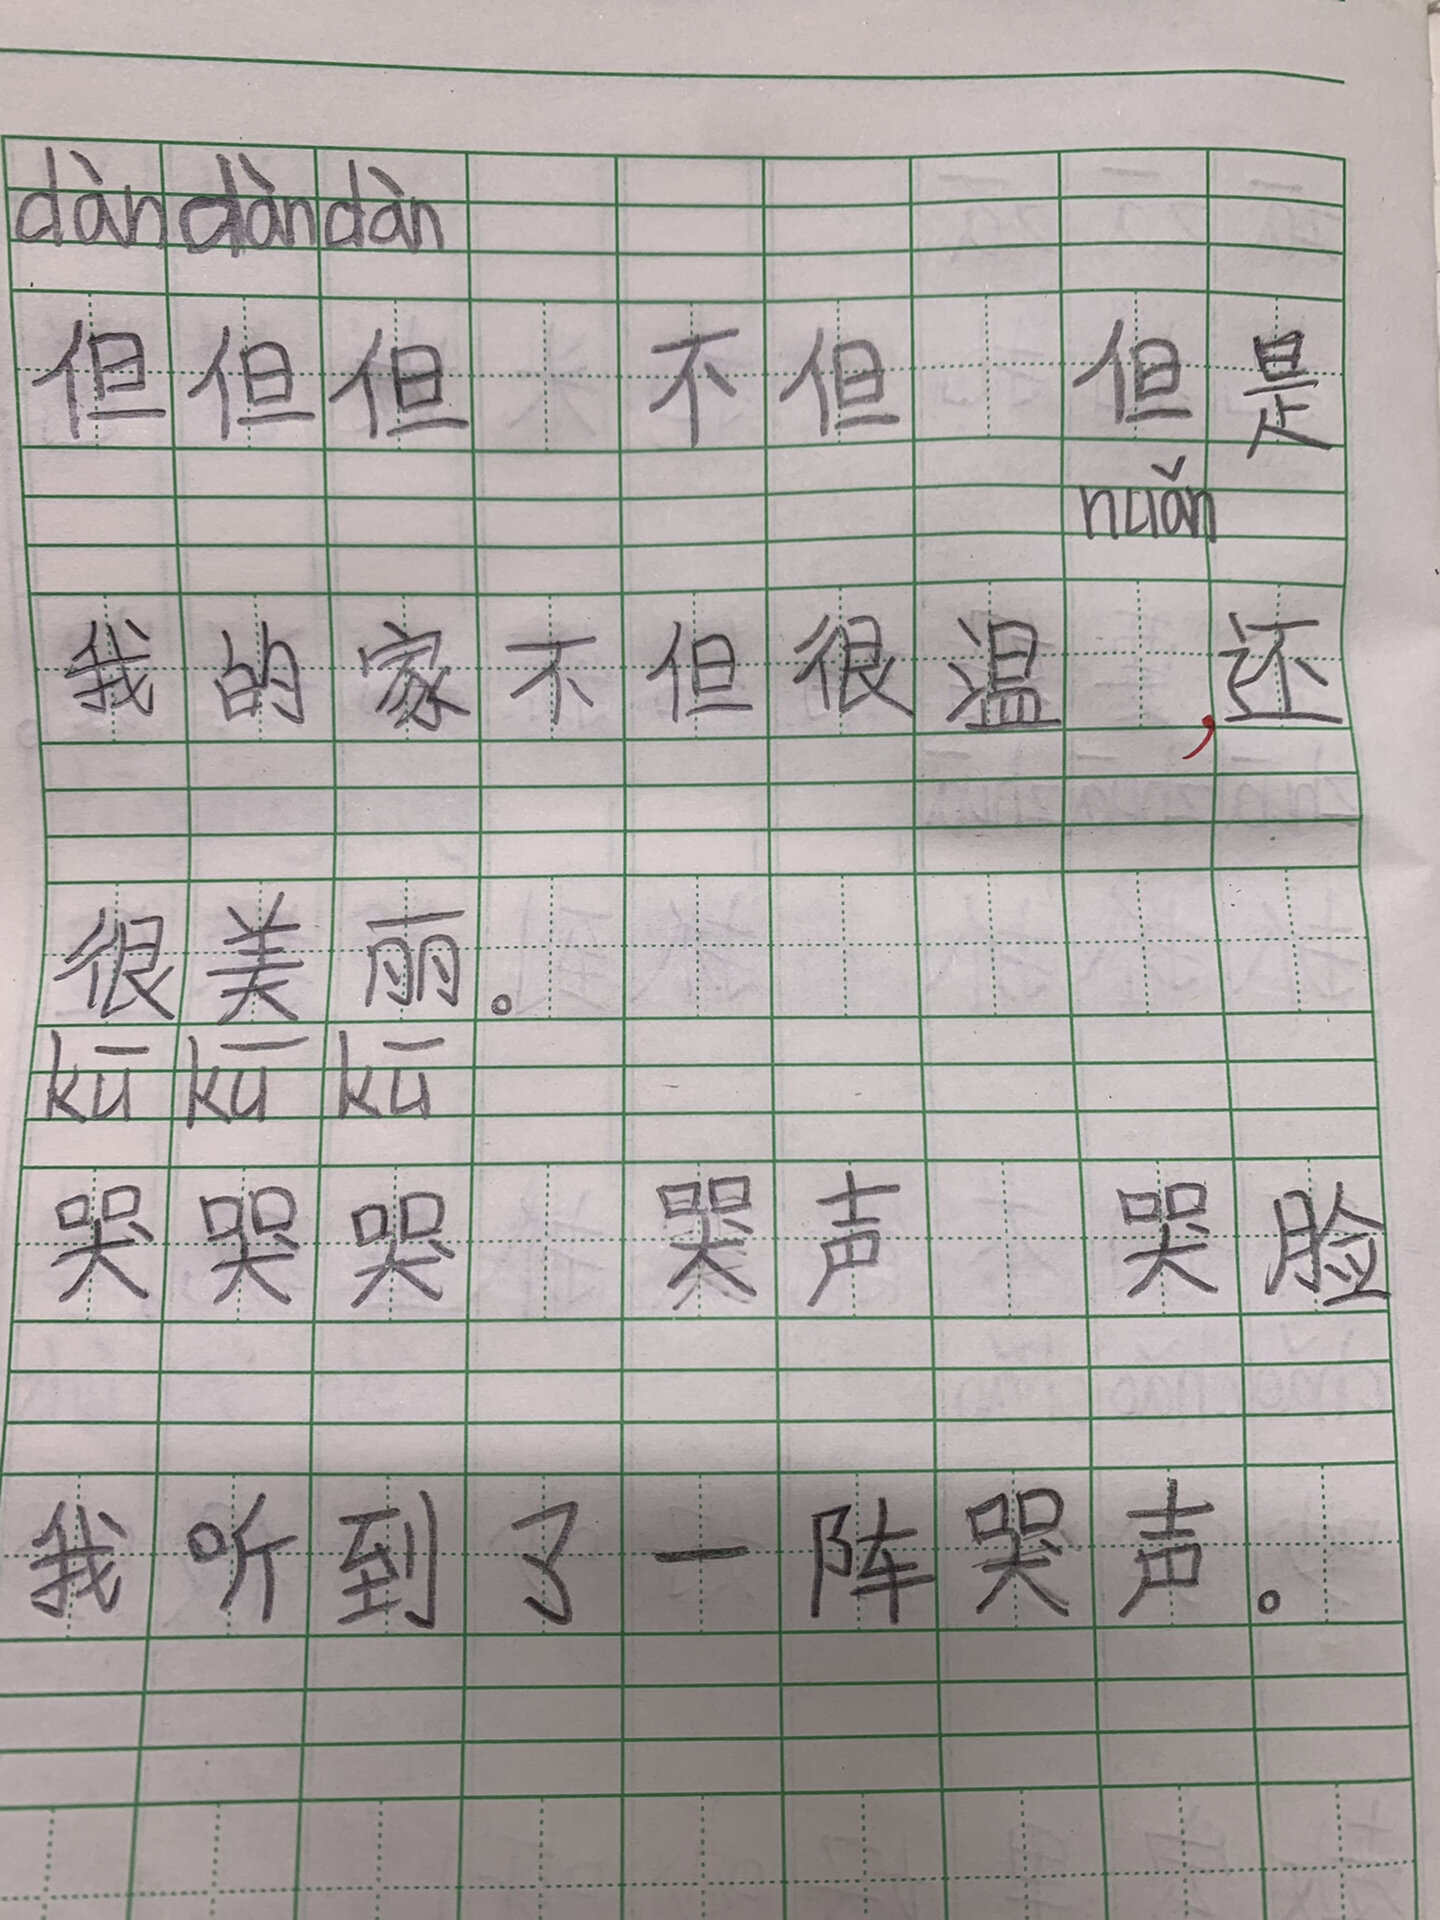 dàn dàn dàn
但但但 不但 但是
nuǎn
我的家不但很温 ,还
很美丽。
kū kū kū
哭哭哭 哭声 哭脸
我听到了一阵哭声。